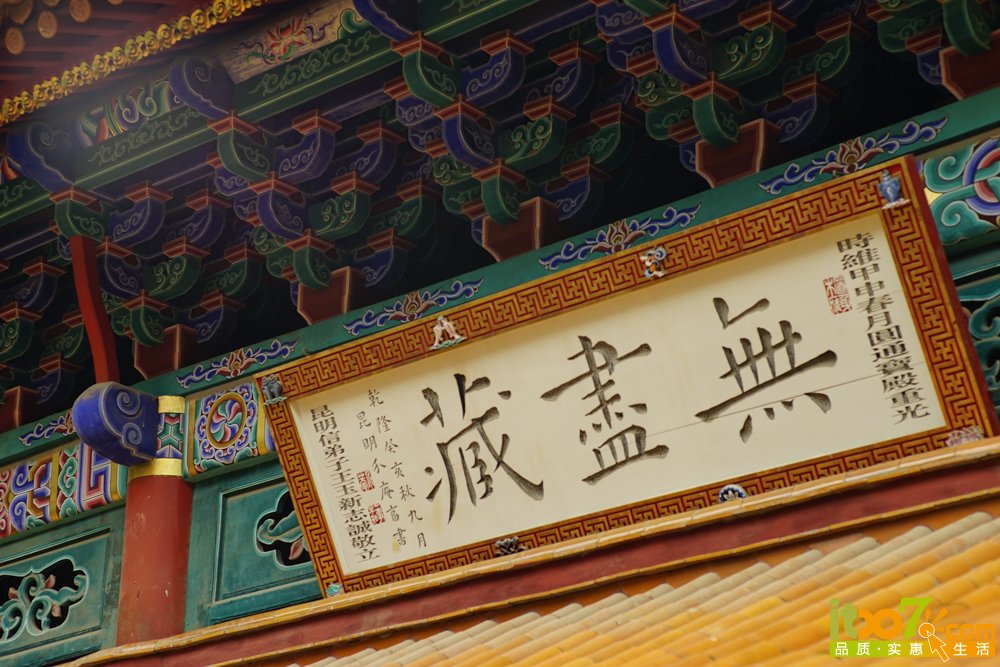 時維甲申春月圓通寶殿重光
無盡藏
乾隆癸亥秋九月
昆明
書
昆明信弟子王玉新志誠敬立
itoo7.com
品质·实惠 生活